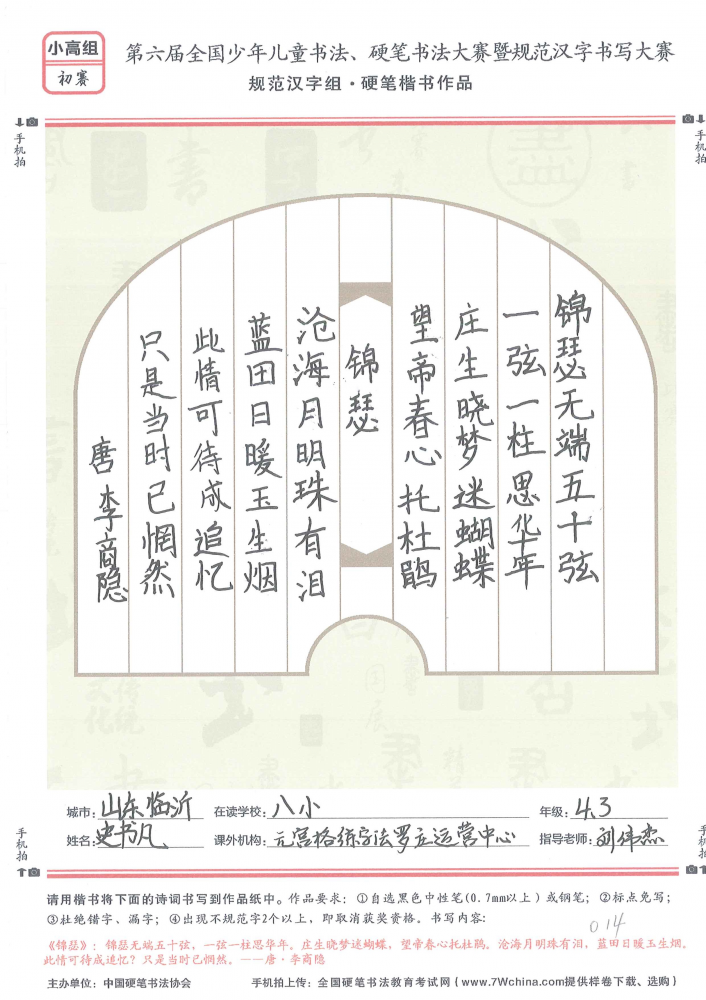 小高组
初赛
第六届全国少年儿童书法、硬笔书法大赛暨规范汉字书写大赛
规范汉字组·硬笔楷书作品
手机拍
手机拍
锦瑟无端五十弦
一弦一柱思华年
庄生晓梦迷蝴蝶
望帝春心托杜鹃
锦瑟
沧海月明珠有泪
蓝田日暖玉生烟
此情可待成追忆
只是当时已惘然
唐 李商隐
城市：山东临沂 在读学校：八小 年级：4.3
姓名：史书凡 课外机构：元宫格练字法罗庄运营中心 指导老师：刘伟杰
手机拍
手机拍
请用楷书将下面的诗词书写到作品纸中。作品要求：①自选黑色中性笔(0.7mm以上）或钢笔；②标点免写；
③杜绝错字、漏字；④出现不规范字2个以上，即取消获奖资格。书写内容：
014
《锦瑟》：锦瑟无端五十弦，一弦一柱思华年。庄生晓梦迷蝴蝶，望帝春心托杜鹃。沧海月明珠有泪，蓝田日暖玉生烟。
此情可待成追忆？只是当时已惘然。——唐·李商隐
主办单位：中国硬笔书法协会 手机拍上传：全国硬笔书法教育考试网（www.7Wchina.com提供样卷下载、选购）